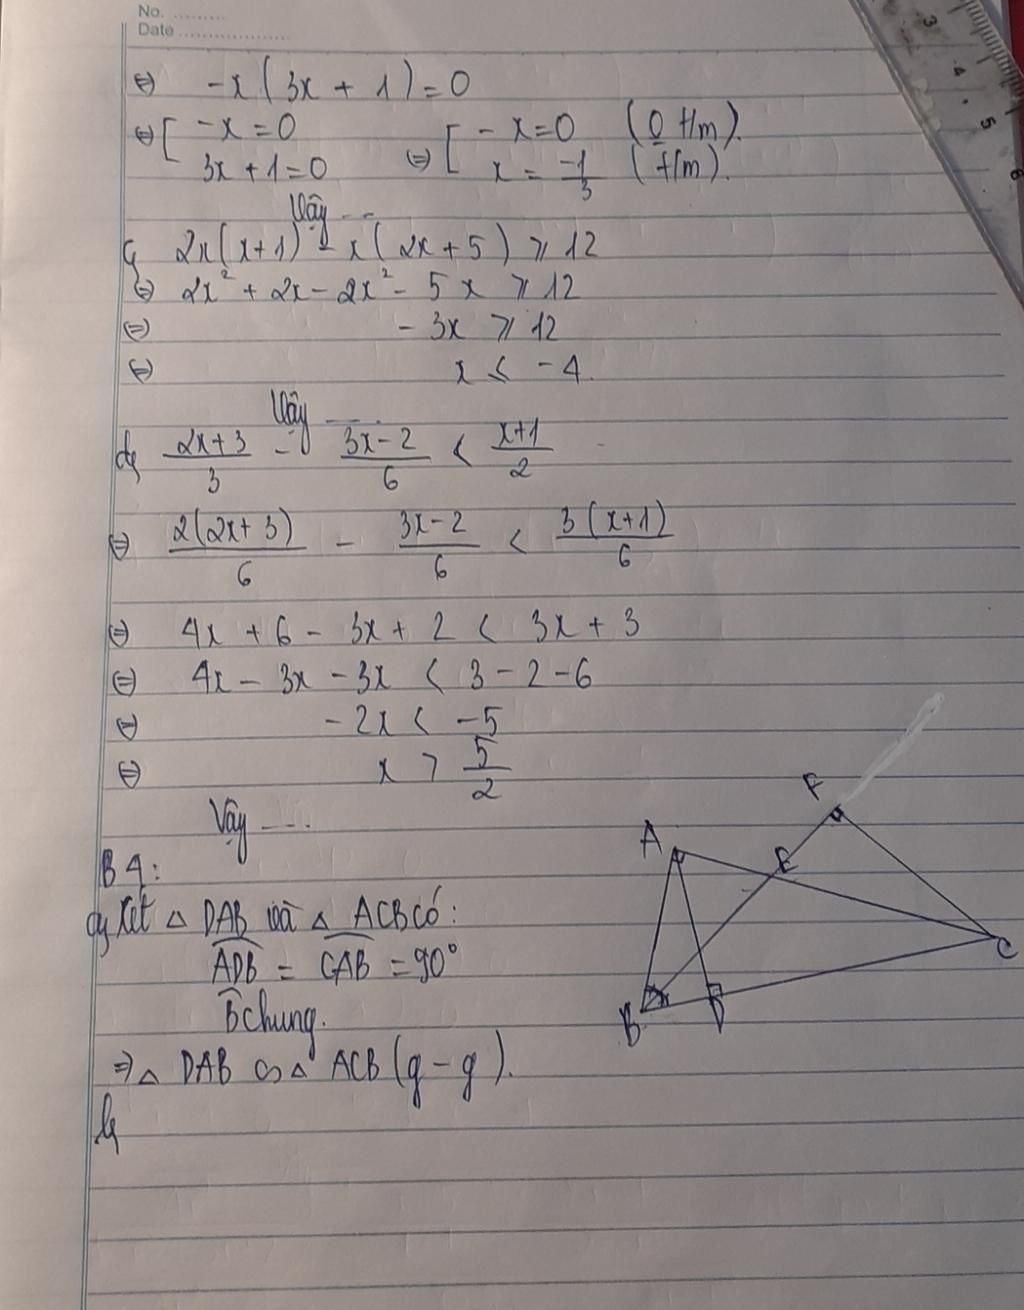 No. ........
Date ..................
⇔ -x(3x + 1) = 0
⇔ [ -x = 0 ⇔ [ -x = 0 (0 t/m).
3x + 1 = 0 x = -1/3 (t/m).
Vậy ---
c, 2x(x+1) - x(2x+5) ≥ 12
⇔ 2x² + 2x - 2x² - 5x ≥ 12
⇔ -3x ≥ 12
⇔ x ≤ -4.
Vậy ----
d, (2x+3)/3 - (3x-2)/6 < (x+1)/2
⇔ 2(2x+3)/6 - (3x-2)/6 < 3(x+1)/6
⇔ 4x + 6 - 3x + 2 < 3x + 3
⇔ 4x - 3x - 3x < 3 - 2 - 6
⇔ -2x < -5
⇔ x > 5/2
Vậy ----
B4:
a, Xét △ DAB và △ ACB có:
ADB = CAB = 90°
B chung.
⇒ △ DAB ∽ △ ACB (g-g).
b,
F
A
E
C
B
D
3
4
5
6